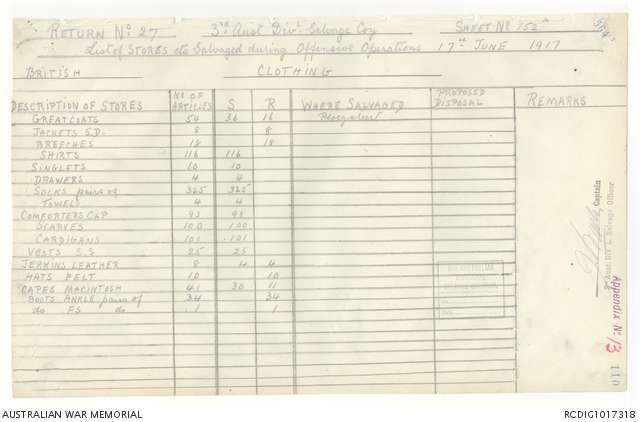 RETURN No 27 3rd Aust Divl Salvage Coy SHEET No 752A
List of STORES etc Salvaged during Offensive Operations 17th JUNE 1917
BRITISH CLOTHING
DESCRIPTION OF STORES No OF ARTICLES S R WHERE SALVAGED PROPOSED DISPOSAL REMARKS
GREATCOATS 54 36 16
JACKETS S.D. 8 8
BREECHES 18 18
SHIRTS 116 116
SINGLETS 10 10
DRAWERS 4 4
SOCKS pairs of 325 325
TOWELS 4 4
COMFORTERS CAP 93 93
SCARVES 100 100
CARDIGANS 101 101
VESTS S.S 25 25
JERKINS LEATHER 8 4 4
HATS FELT 10 10
CAPES MACINTOSH 41 30 11
BOOTS ANKLE pairs of 34 34
do F.S do 1 1
Captain
3rd Aust. Div'l. Salvage Officer
Appendix No 13
110
AUSTRALIAN WAR MEMORIAL RCDIG1017318